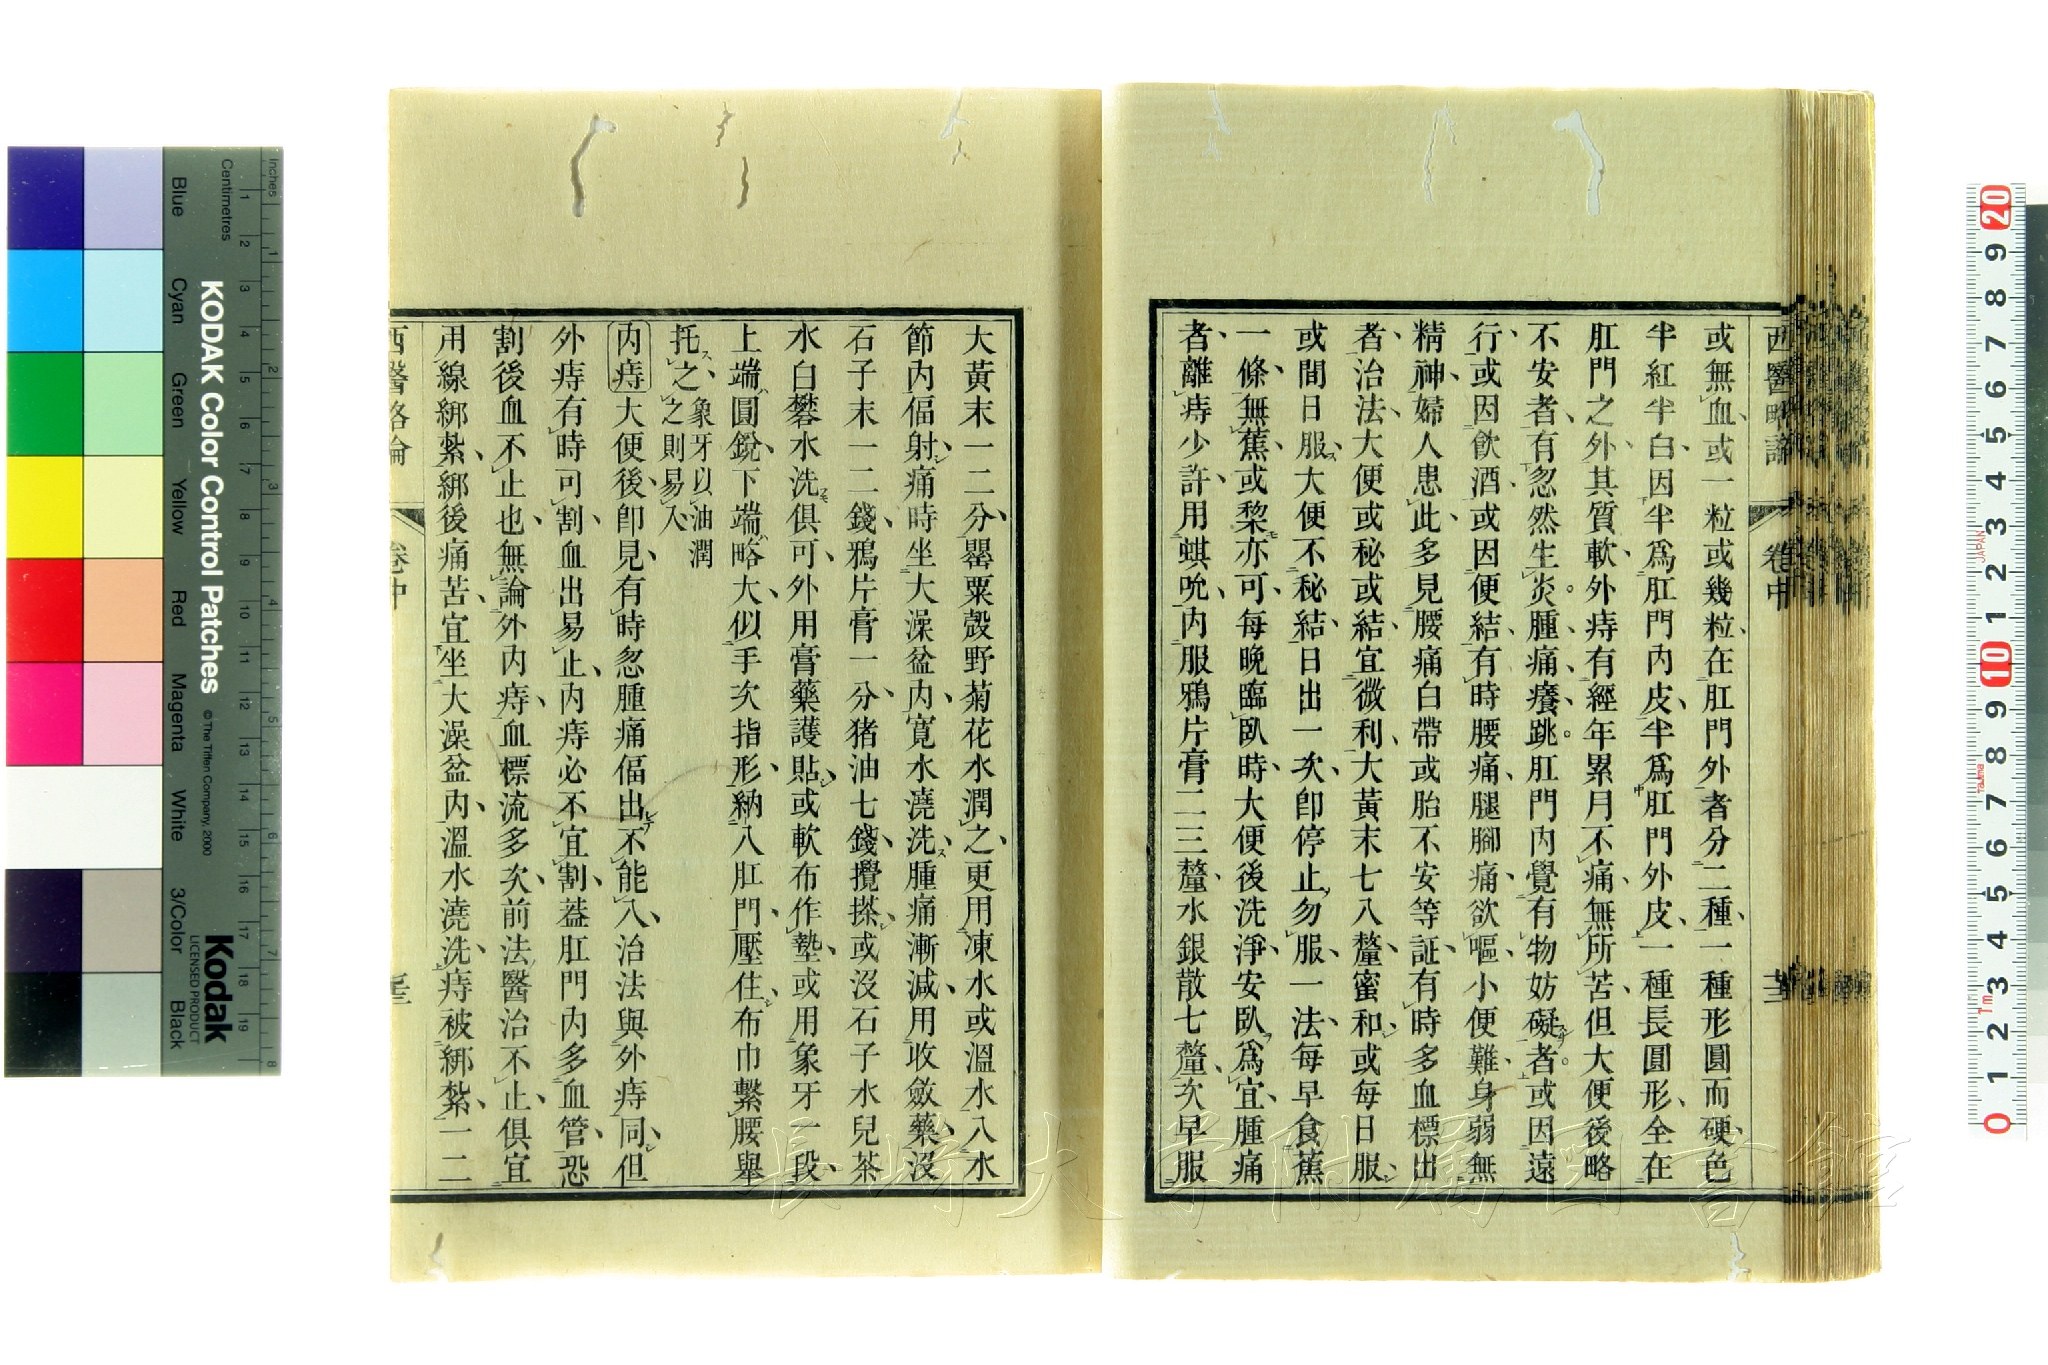 西醫略論 卷中
或無血或一粒或幾粒在肛門外者分二種一種形圓而硬色
半紅半白因半爲肛門內皮半爲肛門外皮一種長圓形全在
肛門之外其質軟外痔有經年累月不痛無所苦但大便後略
不安者有忽然生炎腫痛癢跳肛門內覺有物妨礙者或因遠
行或因飲酒或因便結有時腰痛腿腳痛欲嘔小便難身弱無
精神婦人患此多見腰痛白帶或胎不安等証有時多血標出
者治法大便或秘或結宜微利大黃末七八釐蜜和或每日服
或間日服大便不秘結日出一次卽停止勿服一法每早食蕉
一條無蕉或棃亦可每晚臨臥時大便後洗淨安臥爲宜腫痛
者離痔少許用蜞吮內服鴉片膏二三釐水銀散七釐次早服
大黃末一二分罌粟殼野菊花水潤之更用凍水或溫水入水
節內偪射痛時坐大澡盆內寬水澆洗腫痛漸減用收斂藥沒
石子末一二錢鴉片膏一分猪油七錢攪搽或沒石子水兒茶
水白礬水洗俱可外用膏藥護貼或軟布作墊或用象牙一段
上端圓銳下端略大似手次指形納入肛門壓住布巾繫腰舉
托之象牙以油潤之則易入
內痔大便後卽見有時忽腫痛偪出不能入治法與外痔同但
外痔有時可割血出易止內痔必不宜割葢肛門內多血管恐
割後血不止也無論外內痔血標流多次前法醫治不止俱宜
用線綁紮綁後痛苦宜坐大澡盆內溫水澆洗痔被綁紮一二
西醫略論 卷中
KODAK Color Control Patches
© The Tiffen Company, 2000
Kodak
LICENSED PRODUCT
Inches
1 2 3 4 5 6 7 8
Centimetres
1 2 3 4 5 6 7 8 9 10 11 12 13 14 15 16 17 18 19
Blue
Cyan
Green
Yellow
Red
Magenta
White
3/Color
Black
20 9 8 7 6 5 4 3 2 1 10 9 8 7 6 5 4 3 2 1 0
JAPAN
長崎大学附属図書館